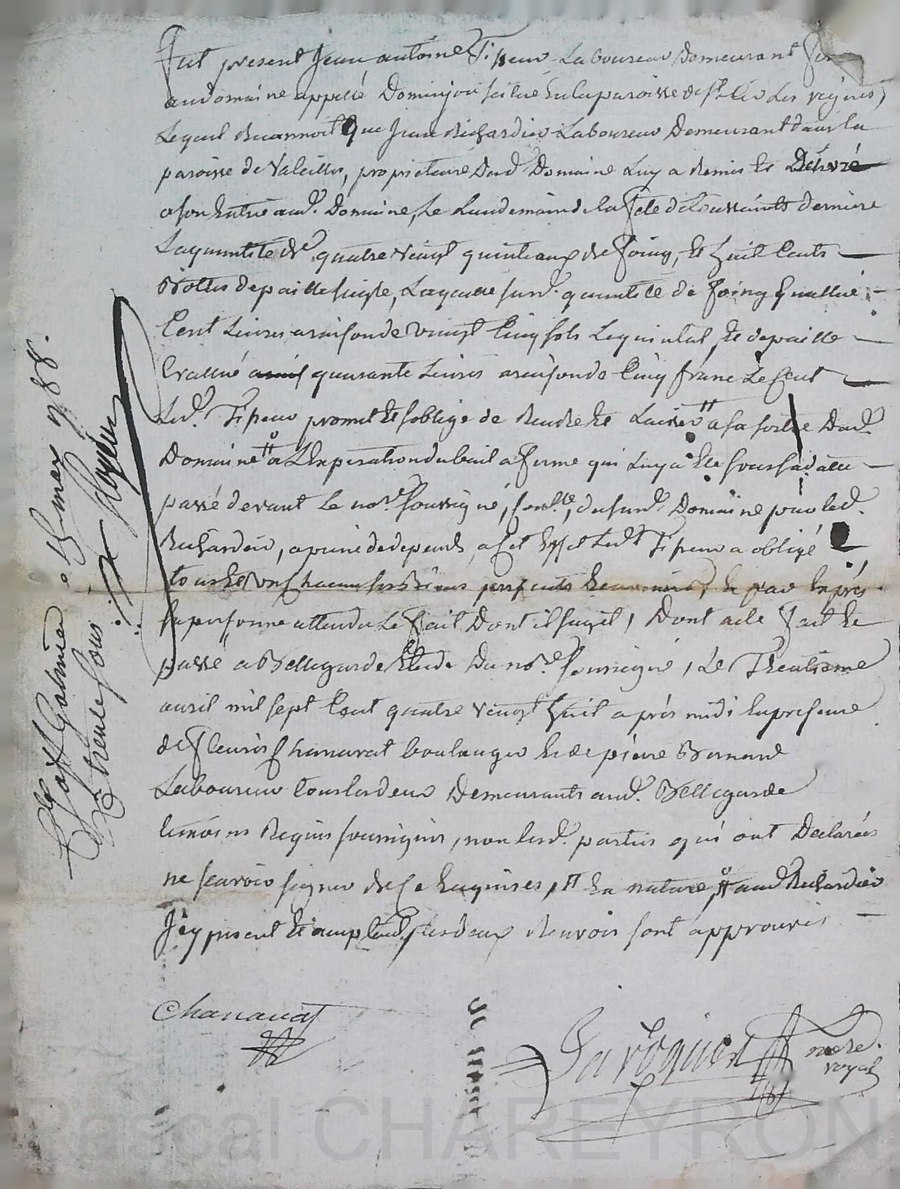 Fut present Jean antoine Laboureur Demeurant
au domaine appellé scitué en la paroisse de St. les vignes,
Lequel Reconnoit Que Jean Richardier Laboureur Demeurant dans la
paroisse de Valeilles, propriétaire Dud. Domaine, Luy a Remis Et Délivré
a son Entrée aud. Domaine, Le Lendemain de la fete de toussaints derniere
La quantité de quatre vingt quintaux de foing, Et huit Cents
Bottes de paille seigle, Laquelle susd. quantité de foing Evallué
Cent Livres a raison de vingt Cinq sols Le quintal, Et de paille
Evallué quarante Livres a raison de Cinq franc Le Cent
Led. promet Et soblige de Rendre Et Laisser # a sa sortie Dud.
Domaine # a L'Expiration du bail a ferme qui Luy a Eté
passé devant Le nore. soussigné, dususd. Domaine par led.
Richardier, a peine de depends, a Cet Effet Led. a obligé
tous Et Uns Chacuns ses Biens presents Et avenir Et par Exprés
sa personne attendu Le fait Dont il sagit, Dont acte fait Et
passé a Bellegarde Etude Du nore. soussigné, Le Trentieme
avril mil sept Cent quatre vingt huit aprés midi En presence
de fleuris Chanavat boulanger Et de pierre Bernard
Laboureur tous les deux Demeurants aud. Bellegarde
temoins Requis soussignés, non lesd. parties qui ont Declarées
ne scavoir signer de Ce Enquises, # En nature # aud. Richardier
Icy present Et acceptant, ses deux Renvois sont approuvés
Chanavat
nore. royal
Galmier 1788.
trente sous
Pascal CHAREYRON